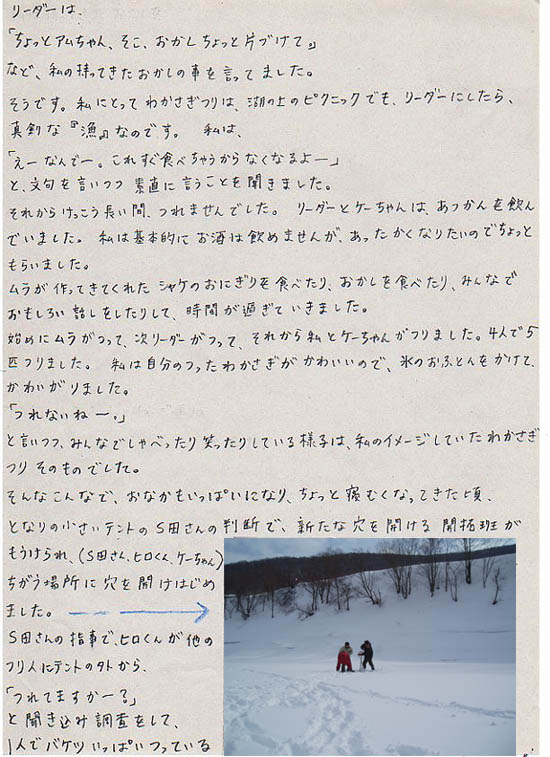 リーダーは、
「ちょっとアムちゃん、そこ、おかしちょっと片づけて。」
など、私の持ってきたおかしの事を言ってました。
そうです。私にとってわかさぎつりは、湖の上のピクニックでも、リーダーにしたら、
真剣な『漁』なのです。 私は、
「えーなんでー。これすぐ食べちゃうからなくなるよー」
と、文句を言いつつ素直に言うことを聞きました。
それからけっこう長い間、つれませんでした。 リーダーとケーちゃんは、あつかんを飲ん
でいました。 私は基本的にお酒は飲めませんが、あったかくなりたいのでちょっと
もらいました。
ムラが作ってきてくれたシャケのおにぎりを食べたり、おかしを食べたり、みんなで
おもしろい話しをしたりして、時間が過ぎていきました。
始めにムラがつって、次リーダーがつって、それから私とケーちゃんがつりました。4人で5
匹つりました。 私は自分のつったわかさぎがかわいいので、氷のおふとんをかけて、
かわいがりました。
「つれないねー。」
と言いつつ、みんなでしゃべったり笑ったりしている様子は、私のイメージしていたわかさぎ
つりそのものでした。
そんなこんなで、おなかもいっぱいになり、ちょっと寒むくなってきた頃、
となりの小さいテントのS田さんの判断で、新たな穴を開ける開拓班が
もうけられ、(S田さん、ヒロくん、ケーちゃん)
ちがう場所に穴を開けはじめ
ました。
S田さんの指事で、ヒロくんが他の
つり人にテントの外から、
「つれてますかー?」
と聞き込み調査をして、
1人でバケツいっぱいつっている